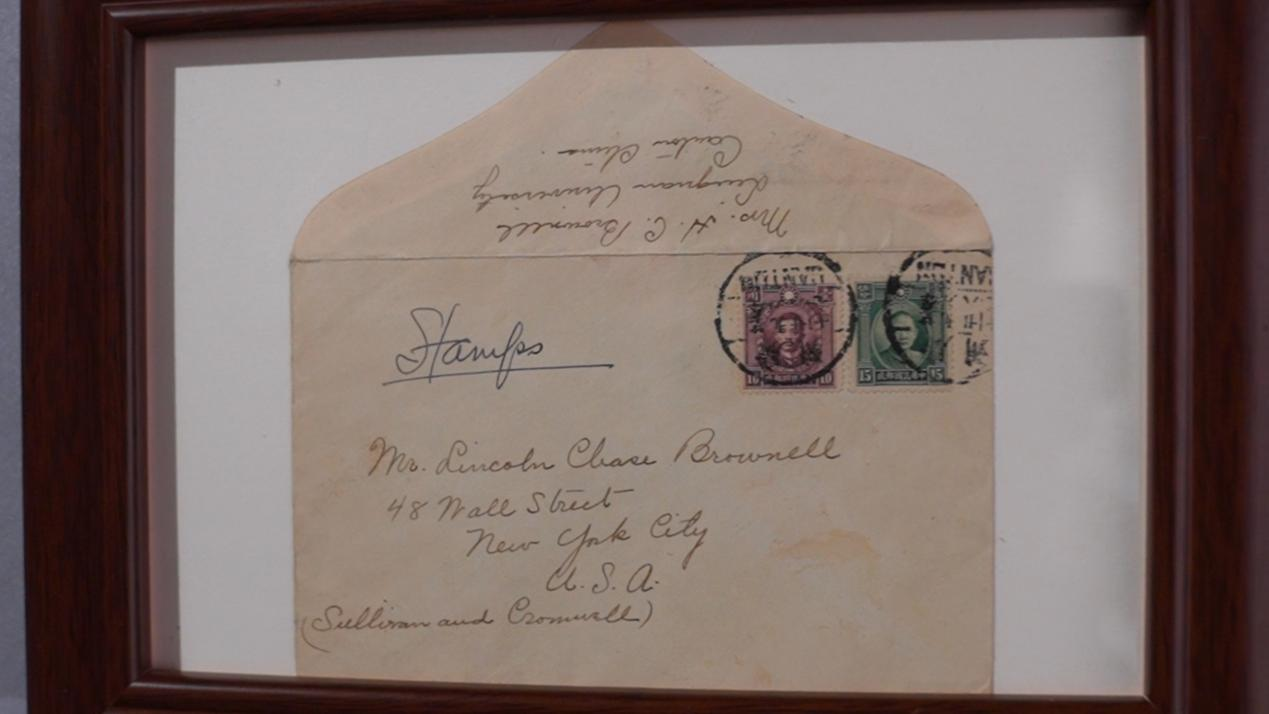 Mrs. H. C. Brownell
Lingnan University
Canton China.
CANTON
ANTON
10 10
15 15
Stamps
Mr. Lincoln Chase Brownell
48 Wall Street
New York City
U.S.A.
(Sullivan and Cromwell)